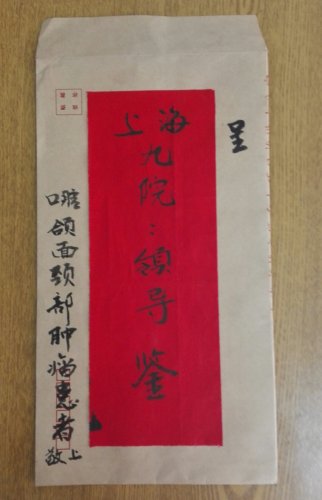 呈
上海
九院：领导
鉴
口腔颌面颈部肿瘤患者
敬上